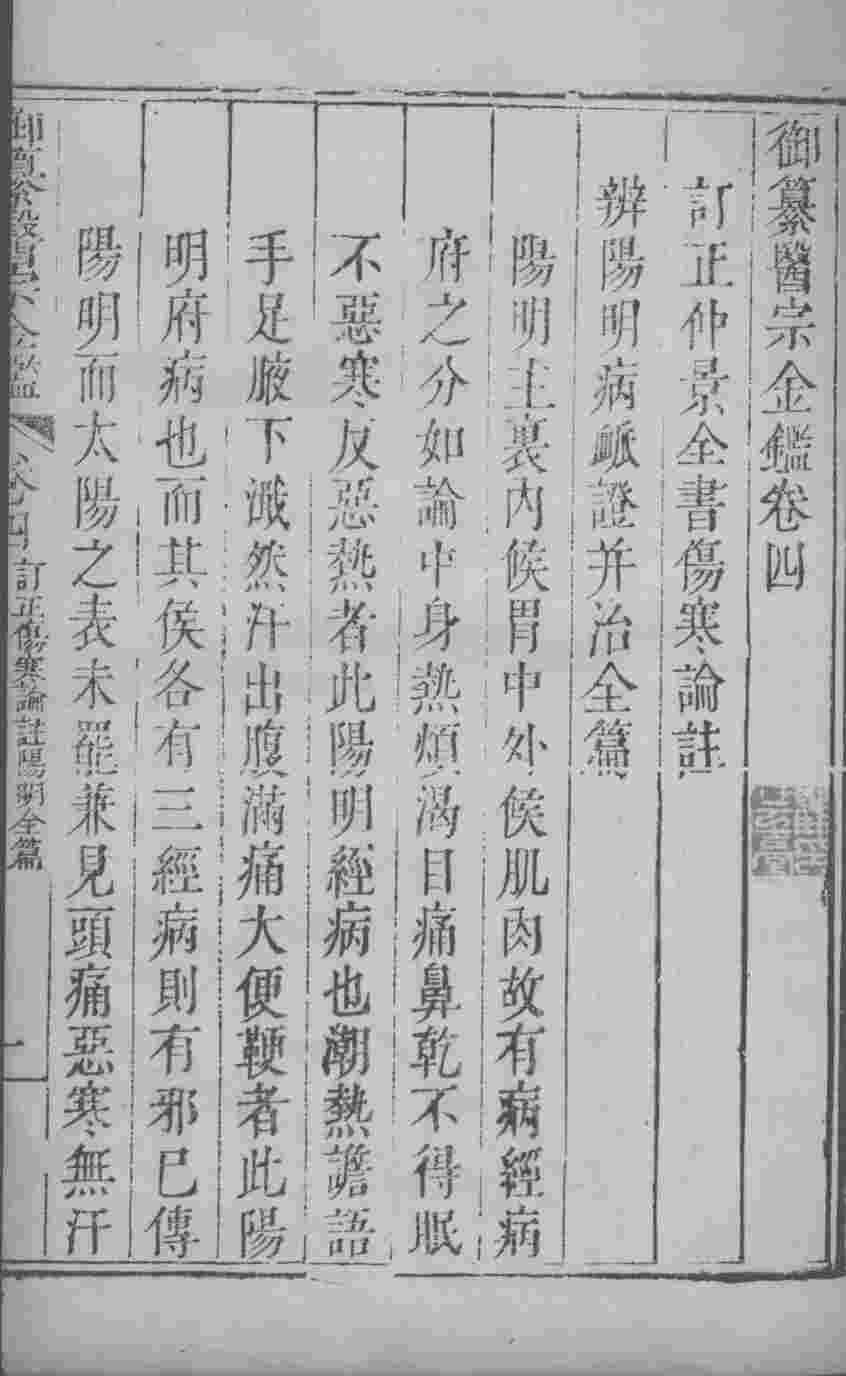 御纂醫宗金鑑卷四
訂正仲景全書傷寒論註
辨陽明病脈證并治全篇
陽明主裏內候胃中外候肌肉故有病經病
府之分如論中身熱煩渴目痛鼻乾不得眠
不惡寒反惡熱者此陽明經病也潮熱譫語
手足腋下濈然汗出腹滿痛大便鞕者此陽
明府病也而其候各有三經病則有邪已傳
陽明而太陽之表未罷兼見頭痛惡寒無汗
御纂醫宗金鑑 卷四 訂正傷寒論註陽明全篇 一